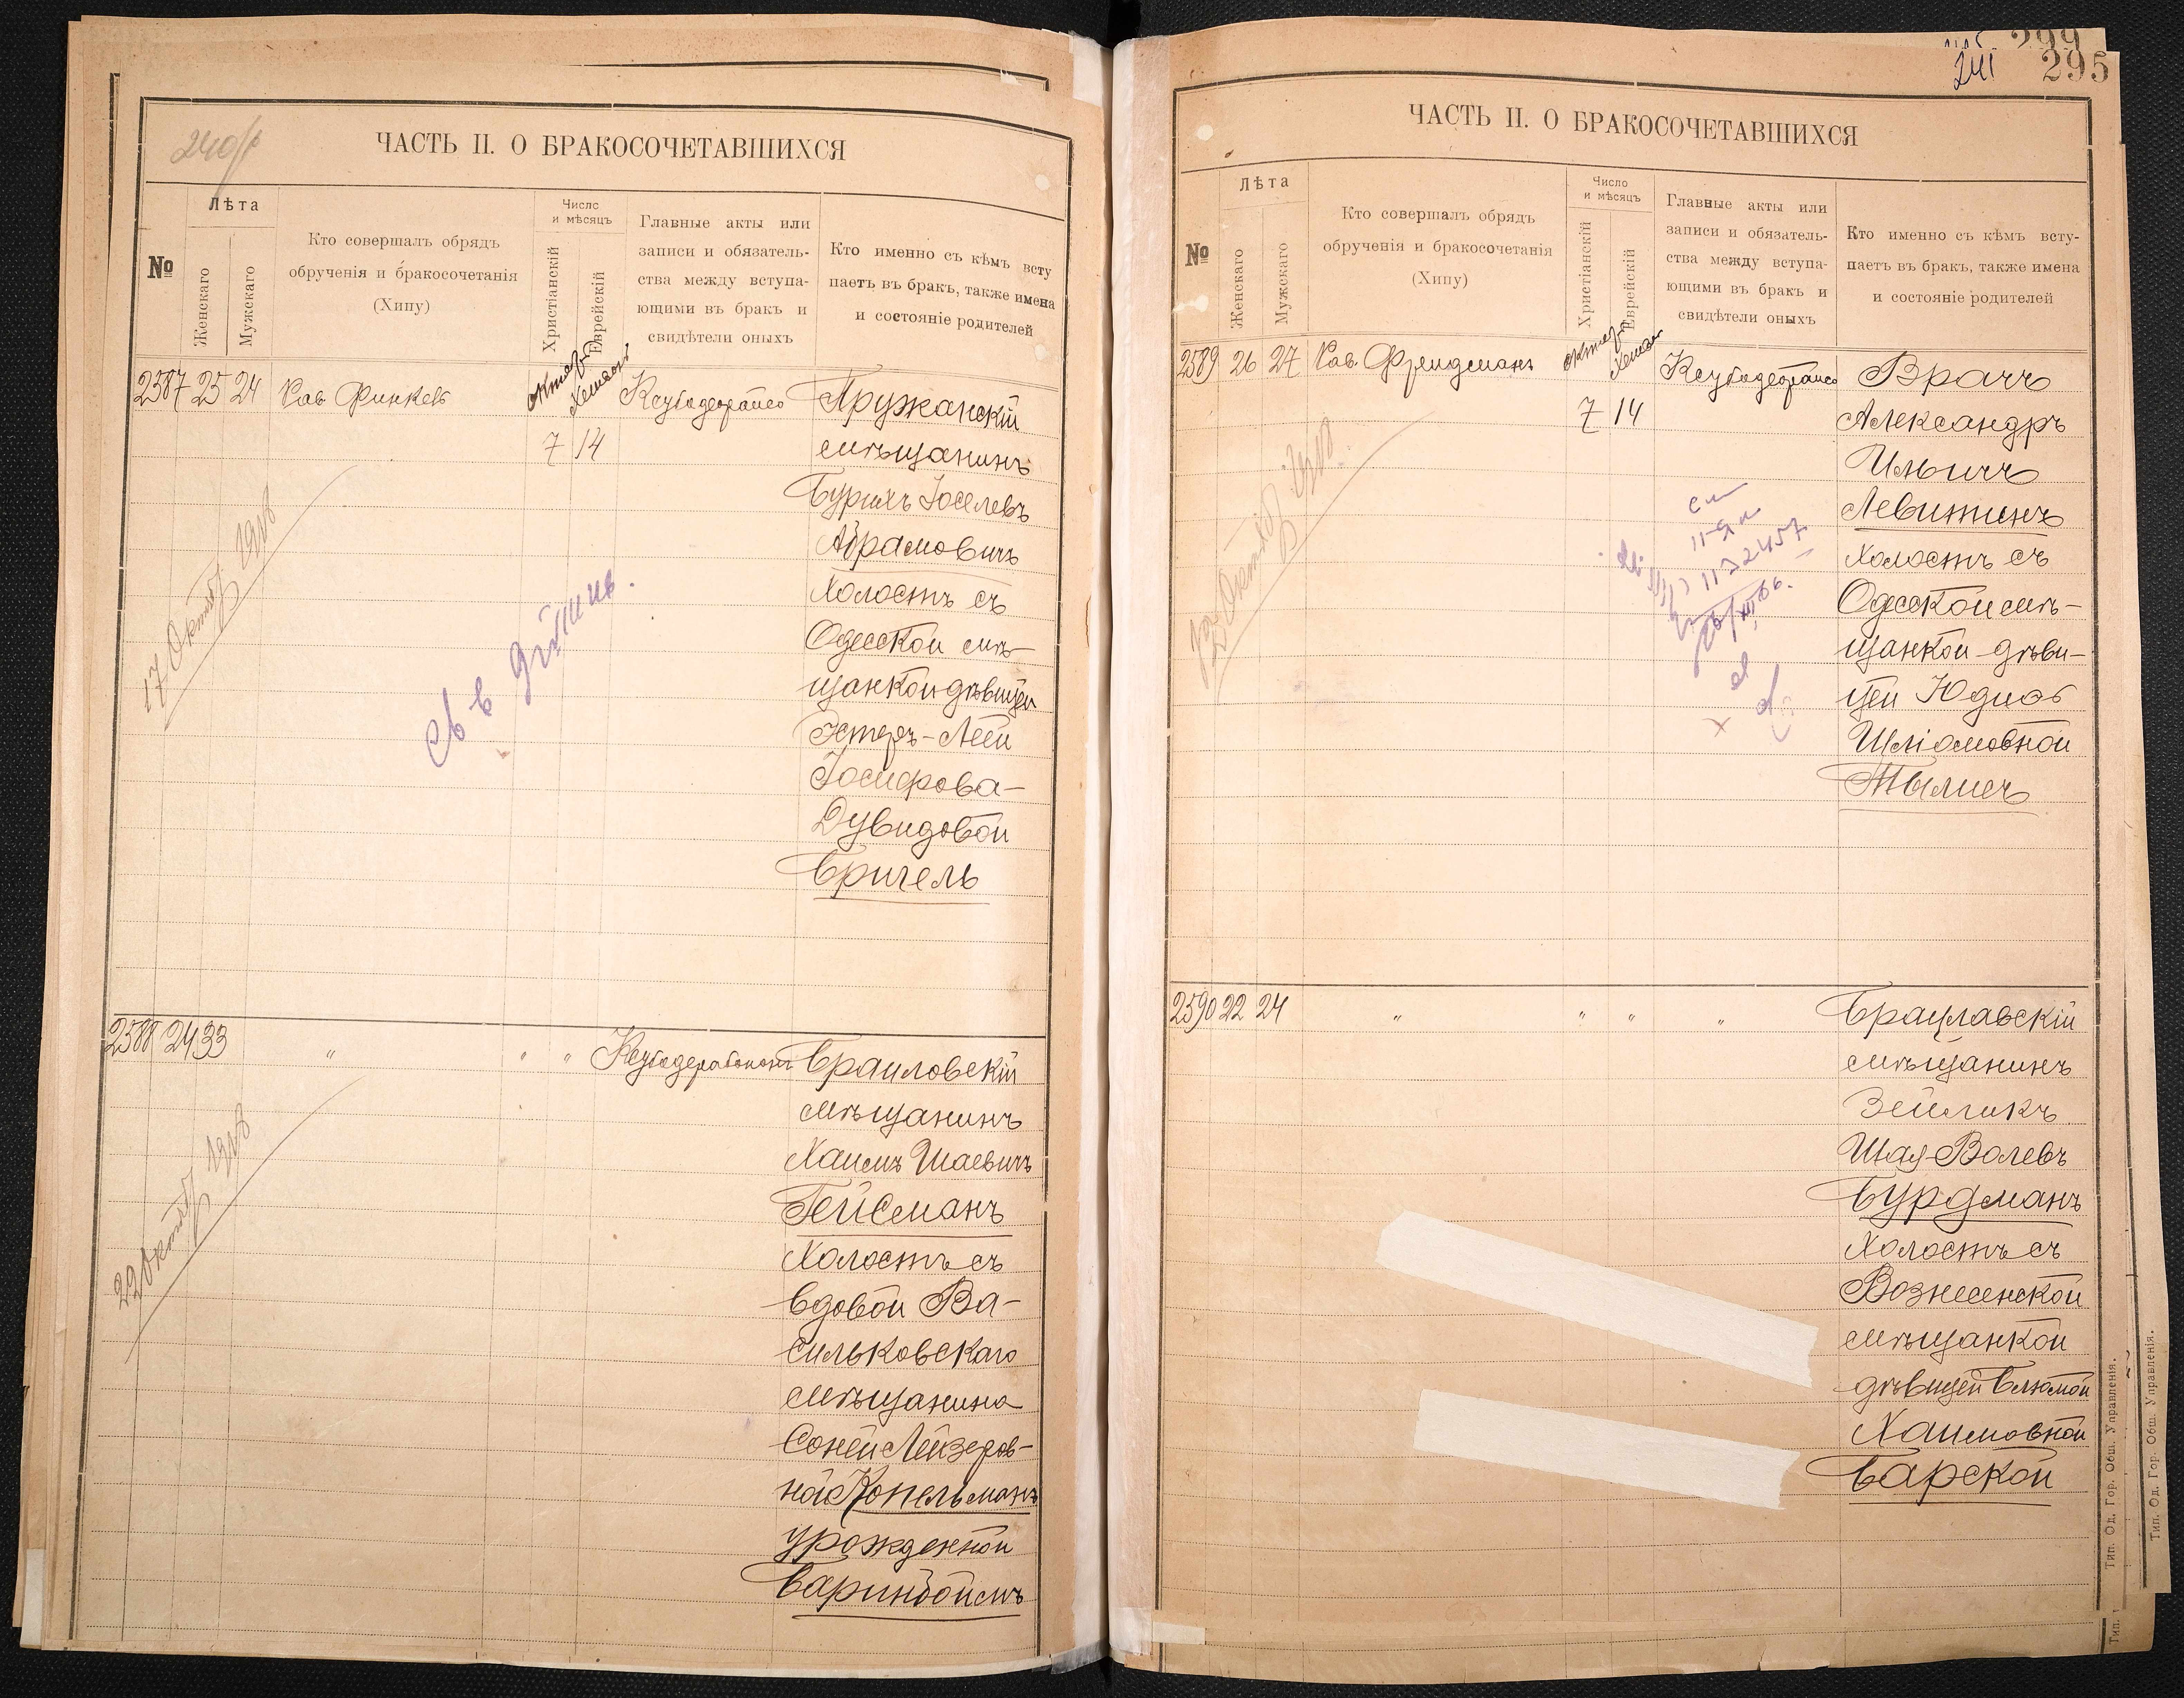 240/б
ЧАСТЬ II. О БРАКОСОЧЕТАВШИХСЯ
№
Лѣта
Женскаго
Мужскаго
Кто совершалъ обрядъ
обрученія и бракосочетанія
(Хипу)
Число
и мѣсяцъ
Христіанскій
Еврейскій
Главные акты или
записи и обязатель-
ства между вступа-
ющими въ бракъ и
свидѣтели оныхъ
Кто именно съ кѣмъ всту
паетъ въ бракъ, также имена
и состояніе родителей
2587 25 24 Рав. Финкель
7 14
Пружанскій
мѣщанинъ
Бурихъ Іоселевъ
Абрамовичъ
Холостъ съ
Одесской мѣ-
щанкой дѣвицей
Эстеръ-Леей
Іосифова-
Дувидовой
Бригель
17 Октяб 1918
2588 24 33 " " "
Браиловскій
мѣщанинъ
Хаимъ Шаевичъ
Гейсманъ
Холостъ съ
вдовой Ва-
сильковскаго
мѣщанина
Соней Лейзеров-
ной Копельманъ
урожденной
Баринбоймъ
22 Октяб 1918
299
241 295
ЧАСТЬ II. О БРАКОСОЧЕТАВШИХСЯ
№
Лѣта
Женскаго
Мужскаго
Кто совершалъ обрядъ
обрученія и бракосочетанія
(Хипу)
Число
и мѣсяцъ
Христіанскій
Еврейскій
Главные акты или
записи и обязатель-
ства между вступа-
ющими въ бракъ и
свидѣтели оныхъ
Кто именно съ кѣмъ всту-
паетъ въ бракъ, также имена
и состояніе родителей
2589 26 27 Рав. Фридманъ
7 14
Врачъ
Александръ
Ильичъ
Левитинъ
холостъ съ
Одесской мѣ-
щанкой дѣви-
цей Юдиоб
Шліомовной
Тылисъ
2590 22 24 " " " "
Брацлавскій
мѣщанинъ
Зейликъ
Шая-Волевъ
Бурдманъ
Холостъ съ
Вознесенской
мѣщанкой
дѣвицей Блюмой
Хаимовной
Барской
Тип. Од. Гор. Общ. Управленія.
Тип. Од. Гор. Общ. Управленія.
Тип.